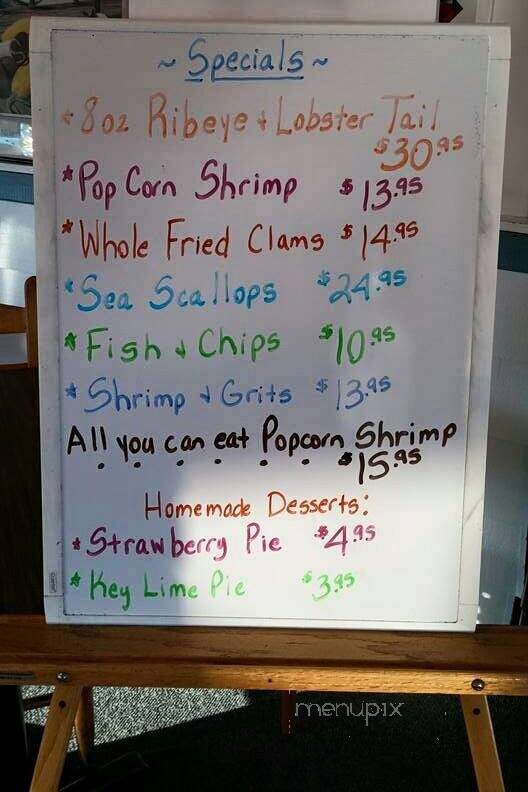 ~ Specials ~
* 8 oz Ribeye & Lobster Tail
$30.95
* Pop Corn Shrimp $13.95
* Whole Fried Clams $14.95
* Sea Scallops $24.95
* Fish & Chips $10.95
* Shrimp & Grits $13.95
All you can eat Popcorn Shrimp
$15.95
Homemade Desserts:
* Strawberry Pie $4.95
* Key Lime Pie $3.95
menupix